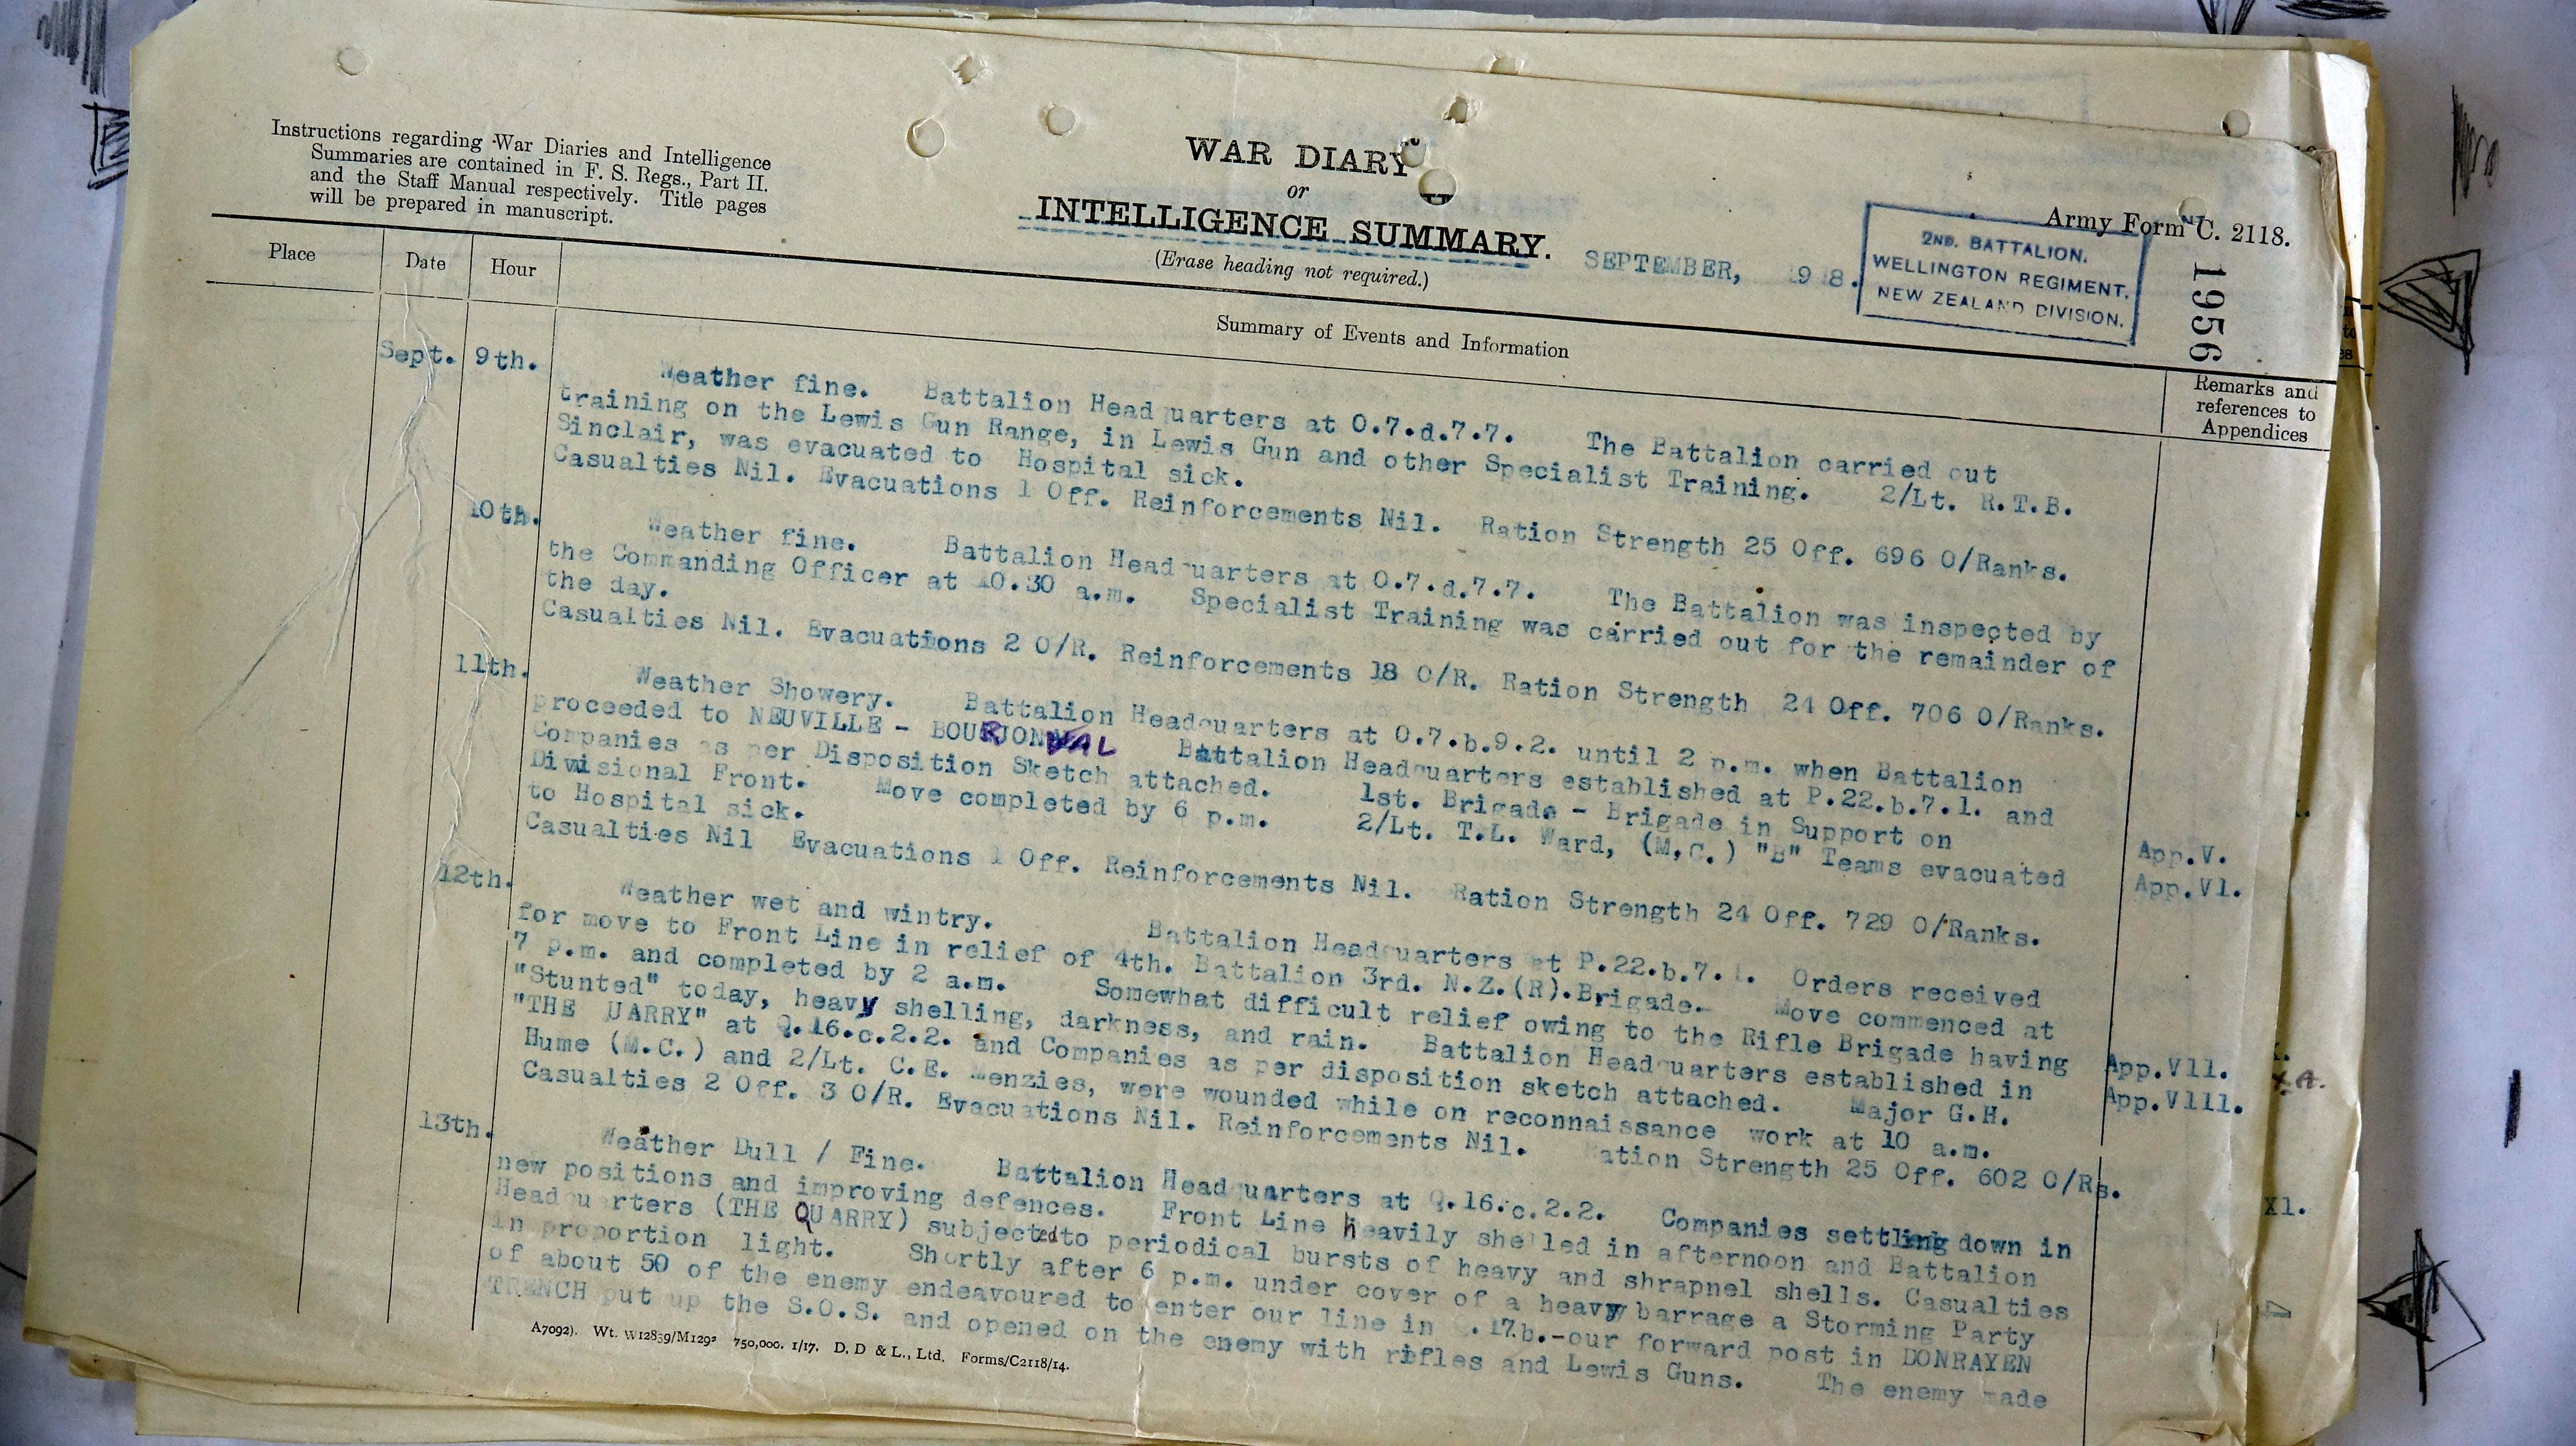 Instructions regarding War Diaries and Intelligence
Summaries are contained in F. S. Regs., Part II.
and the Staff Manual respectively. Title pages
will be prepared in manuscript.
WAR DIARY
or
INTELLIGENCE SUMMARY.
(Erase heading not required.)
SEPTEMBER, 1918.
Army Form C. 2118.
2ND. BATTALION.
WELLINGTON REGIMENT.
NEW ZEALAND DIVISION.
1956
Place
Date
Hour
Summary of Events and Information
Remarks and
references to
Appendices
Sept. 9th.
Weather fine. Battalion Headquarters at O.7.d.7.7. The Battalion carried out
training on the Lewis Gun Range, in Lewis Gun and other Specialist Training. 2/Lt. R.T.B.
Sinclair, was evacuated to Hospital sick.
Casualties Nil. Evacuations 1 Off. Reinforcements Nil. Ration Strength 25 Off. 696 O/Ranks.
10th.
Weather fine. Battalion Headquarters at O.7.d.7.7. The Battalion was inspected by
the Commanding Officer at 10.30 a.m. Specialist Training was carried out for the remainder of
the day.
Casualties Nil. Evacuations 2 O/R. Reinforcements 18 O/R. Ration Strength 24 Off. 706 O/Ranks.
11th.
Weather Showery. Battalion Headquarters at O.7.b.9.2. until 2 p.m. when Battalion
proceeded to NEUVILLE - BOURJONVAL Battalion Headquarters established at P.22.b.7.1. and
Companies as per Disposition Sketch attached. 1st. Brigade - Brigade in Support on
Divisional Front. Move completed by 6 p.m. 2/Lt. T.L. Ward, (M.C.) "B" Teams evacuated
to Hospital sick.
Casualties Nil Evacuations 1 Off. Reinforcements Nil. Ration Strength 24 Off. 729 O/Ranks.
App.V.
App.Vl.
12th.
Weather wet and wintry. Battalion Headquarters at P.22.b.7.1. Orders received
for move to Front Line in relief of 4th. Battalion 3rd. N.Z.(R).Brigade. Move commenced at
7 p.m. and completed by 2 a.m. Somewhat difficult relief owing to the Rifle Brigade having
"Stunted" today, heavy shelling, darkness, and rain. Battalion Headquarters established in
"THE UARRY" at Q.16.c.2.2. and Companies as per disposition sketch attached. Major G.H.
Hume (M.C.) and 2/Lt. C.E. Menzies, were wounded while on reconnaissance work at 10 a.m.
Casualties 2 Off. 3 O/R. Evacuations Nil. Reinforcements Nil. Ration Strength 25 Off. 602 O/Rs.
App.Vll.
App.Vlll.
13th.
Weather Dull / Fine. Battalion Headquarters at Q.16.c.2.2. Companies settling down in
new positions and improving defences. Front Line heavily shelled in afternoon and Battalion
Headquarters (THE QUARRY) subjected to periodical bursts of heavy and shrapnel shells. Casualties
in proportion light. Shortly after 6 p.m. under cover of a heavy barrage a Storming Party
of about 50 of the enemy endeavoured to enter our line in .17.b.-our forward post in DONRAYEN
TRENCH put up the S.O.S. and opened on the enemy with rifles and Lewis Guns. The enemy made
X.A.
Xl.
A7092). Wt. W12839/M1292 750,000. 1/17. D. D & L., Ltd. Forms/C2118/14.